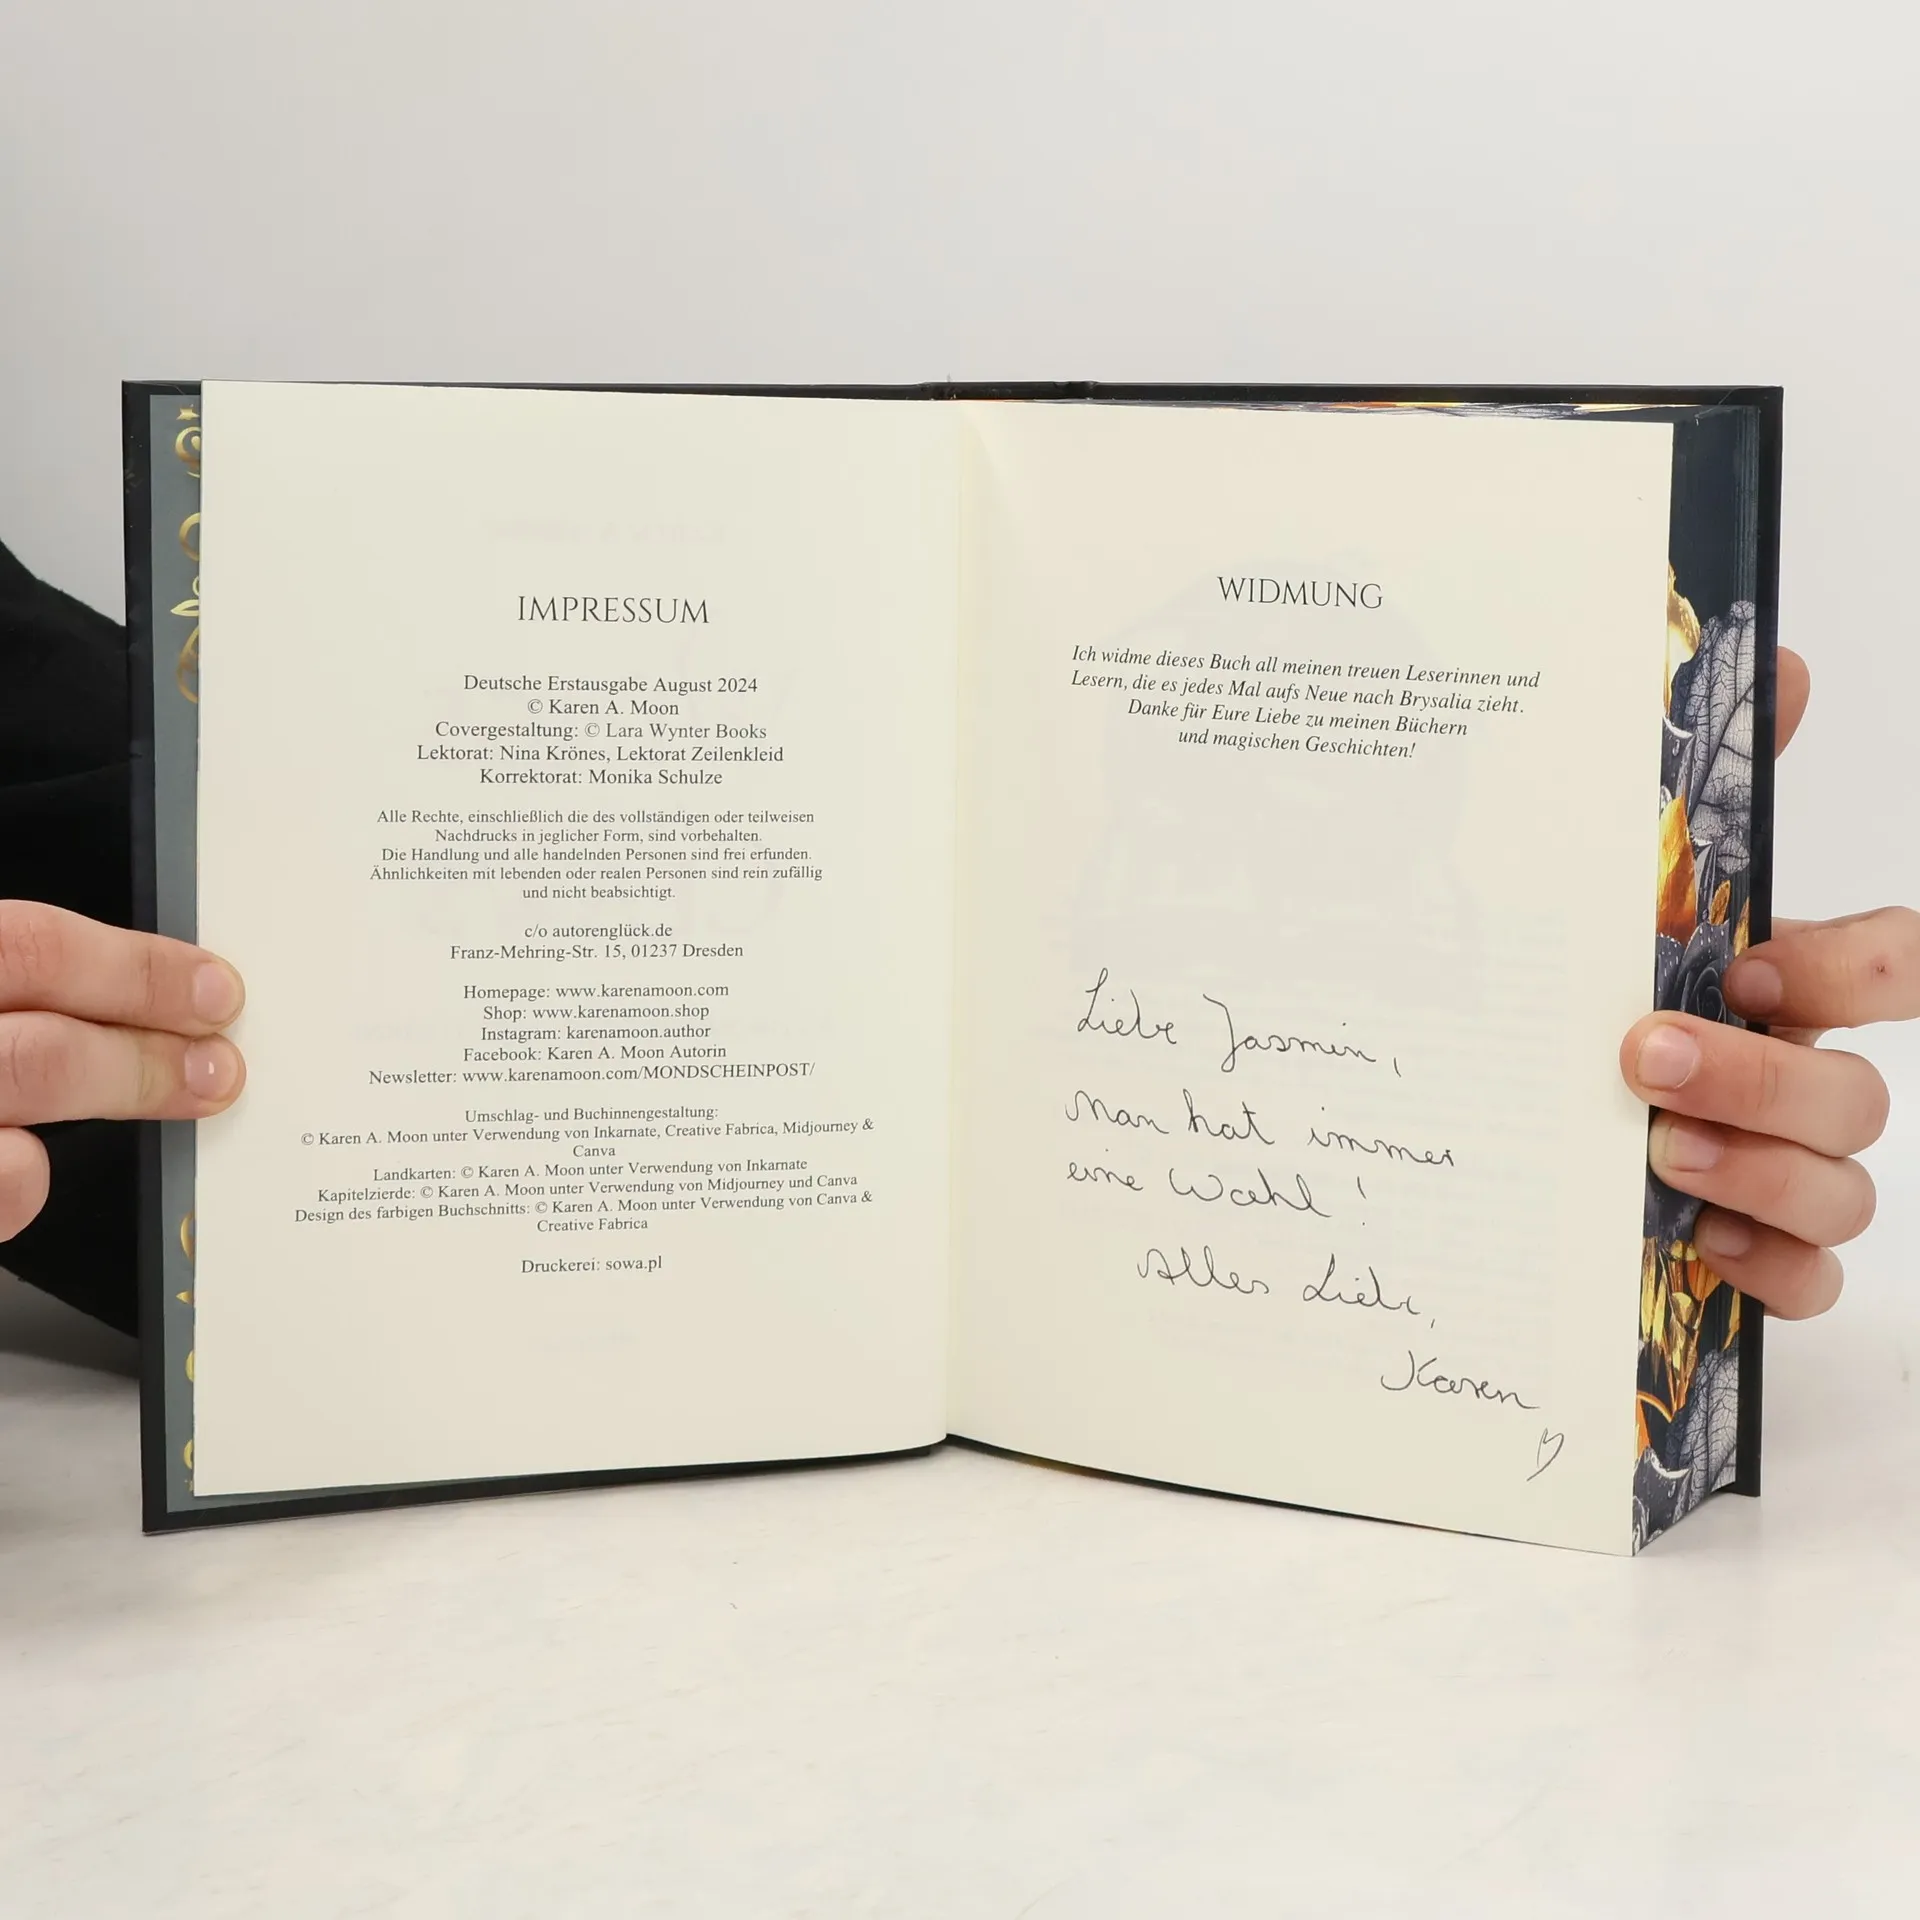 IMPRESSUM
Deutsche Erstausgabe August 2024
© Karen A. Moon
Covergestaltung: © Lara Wynter Books
Lektorat: Nina Krönes, Lektorat Zeilenkleid
Korrektorat: Monika Schulze
Alle Rechte, einschließlich die des vollständigen oder teilweisen
Nachdrucks in jeglicher Form, sind vorbehalten.
Die Handlung und alle handelnden Personen sind frei erfunden.
Ähnlichkeiten mit lebenden oder realen Personen sind rein zufällig
und nicht beabsichtigt.
c/o autorenglück.de
Franz-Mehring-Str. 15, 01237 Dresden
Homepage: www.karenamoon.com
Shop: www.karenamoon.shop
Instagram: karenamoon.author
Facebook: Karen A. Moon Autorin
Newsletter: www.karenamoon.com/MONDSCHEINPOST/
Umschlag- und Buchinnengestaltung:
© Karen A. Moon unter Verwendung von Inkarnate, Creative Fabrica, Midjourney &
Canva
Landkarten: © Karen A. Moon unter Verwendung von Inkarnate
Kapitelzierde: © Karen A. Moon unter Verwendung von Midjourney und Canva
Design des farbigen Buchschnitts: © Karen A. Moon unter Verwendung von Canva &
Creative Fabrica
Druckerei: sowa.pl
WIDMUNG
Ich widme dieses Buch all meinen treuen Leserinnen und
Lesern, die es jedes Mal aufs Neue nach Brysalia zieht.
Danke für Eure Liebe zu meinen Büchern
und magischen Geschichten!
Liebe Jasmin,
Man hat immer
eine Wahl!
Alles Liebe,
Karen